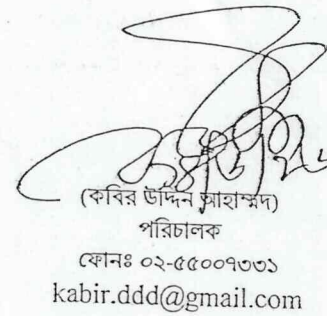 (কবির উদ্দিন আহাম্মদ)
পরিচালক
ফোনঃ ০২-৫৫০০৭৩৩১
kabir.ddd@gmail.com